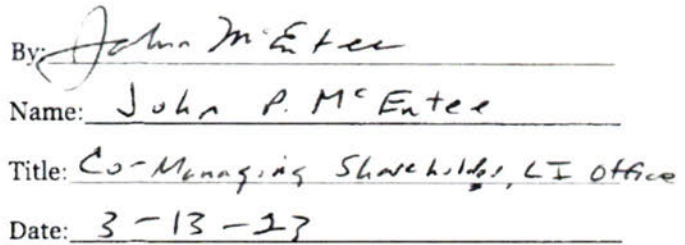 By: John McEntee
Name: John P. McEntee
Title: Co-Managing Shareholder, LI Office
Date: 3-13-23